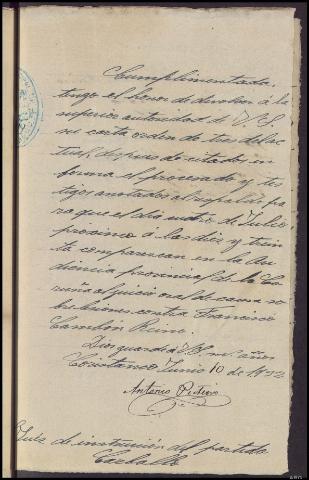 Cumplimentada,
tengo el honor de devolver á la
superior autoridad de V. S.
su carta orden de tres del ac
tual, despues de citados en
forma el procesado y tes
tigos anotados al respaldo pa
ra que el dia cuatro de Julio
procsimo á las diez y trein
ta comparecan en la Au
diencia provincial de la Co
ruña al juicio oral de causa so
bre lesiones contra Francisco
Cambon
Dios guarde á V.S. ms. años
Coristanco Junio 10 de
Antonio
Juez de instrucción del partido
Carballo